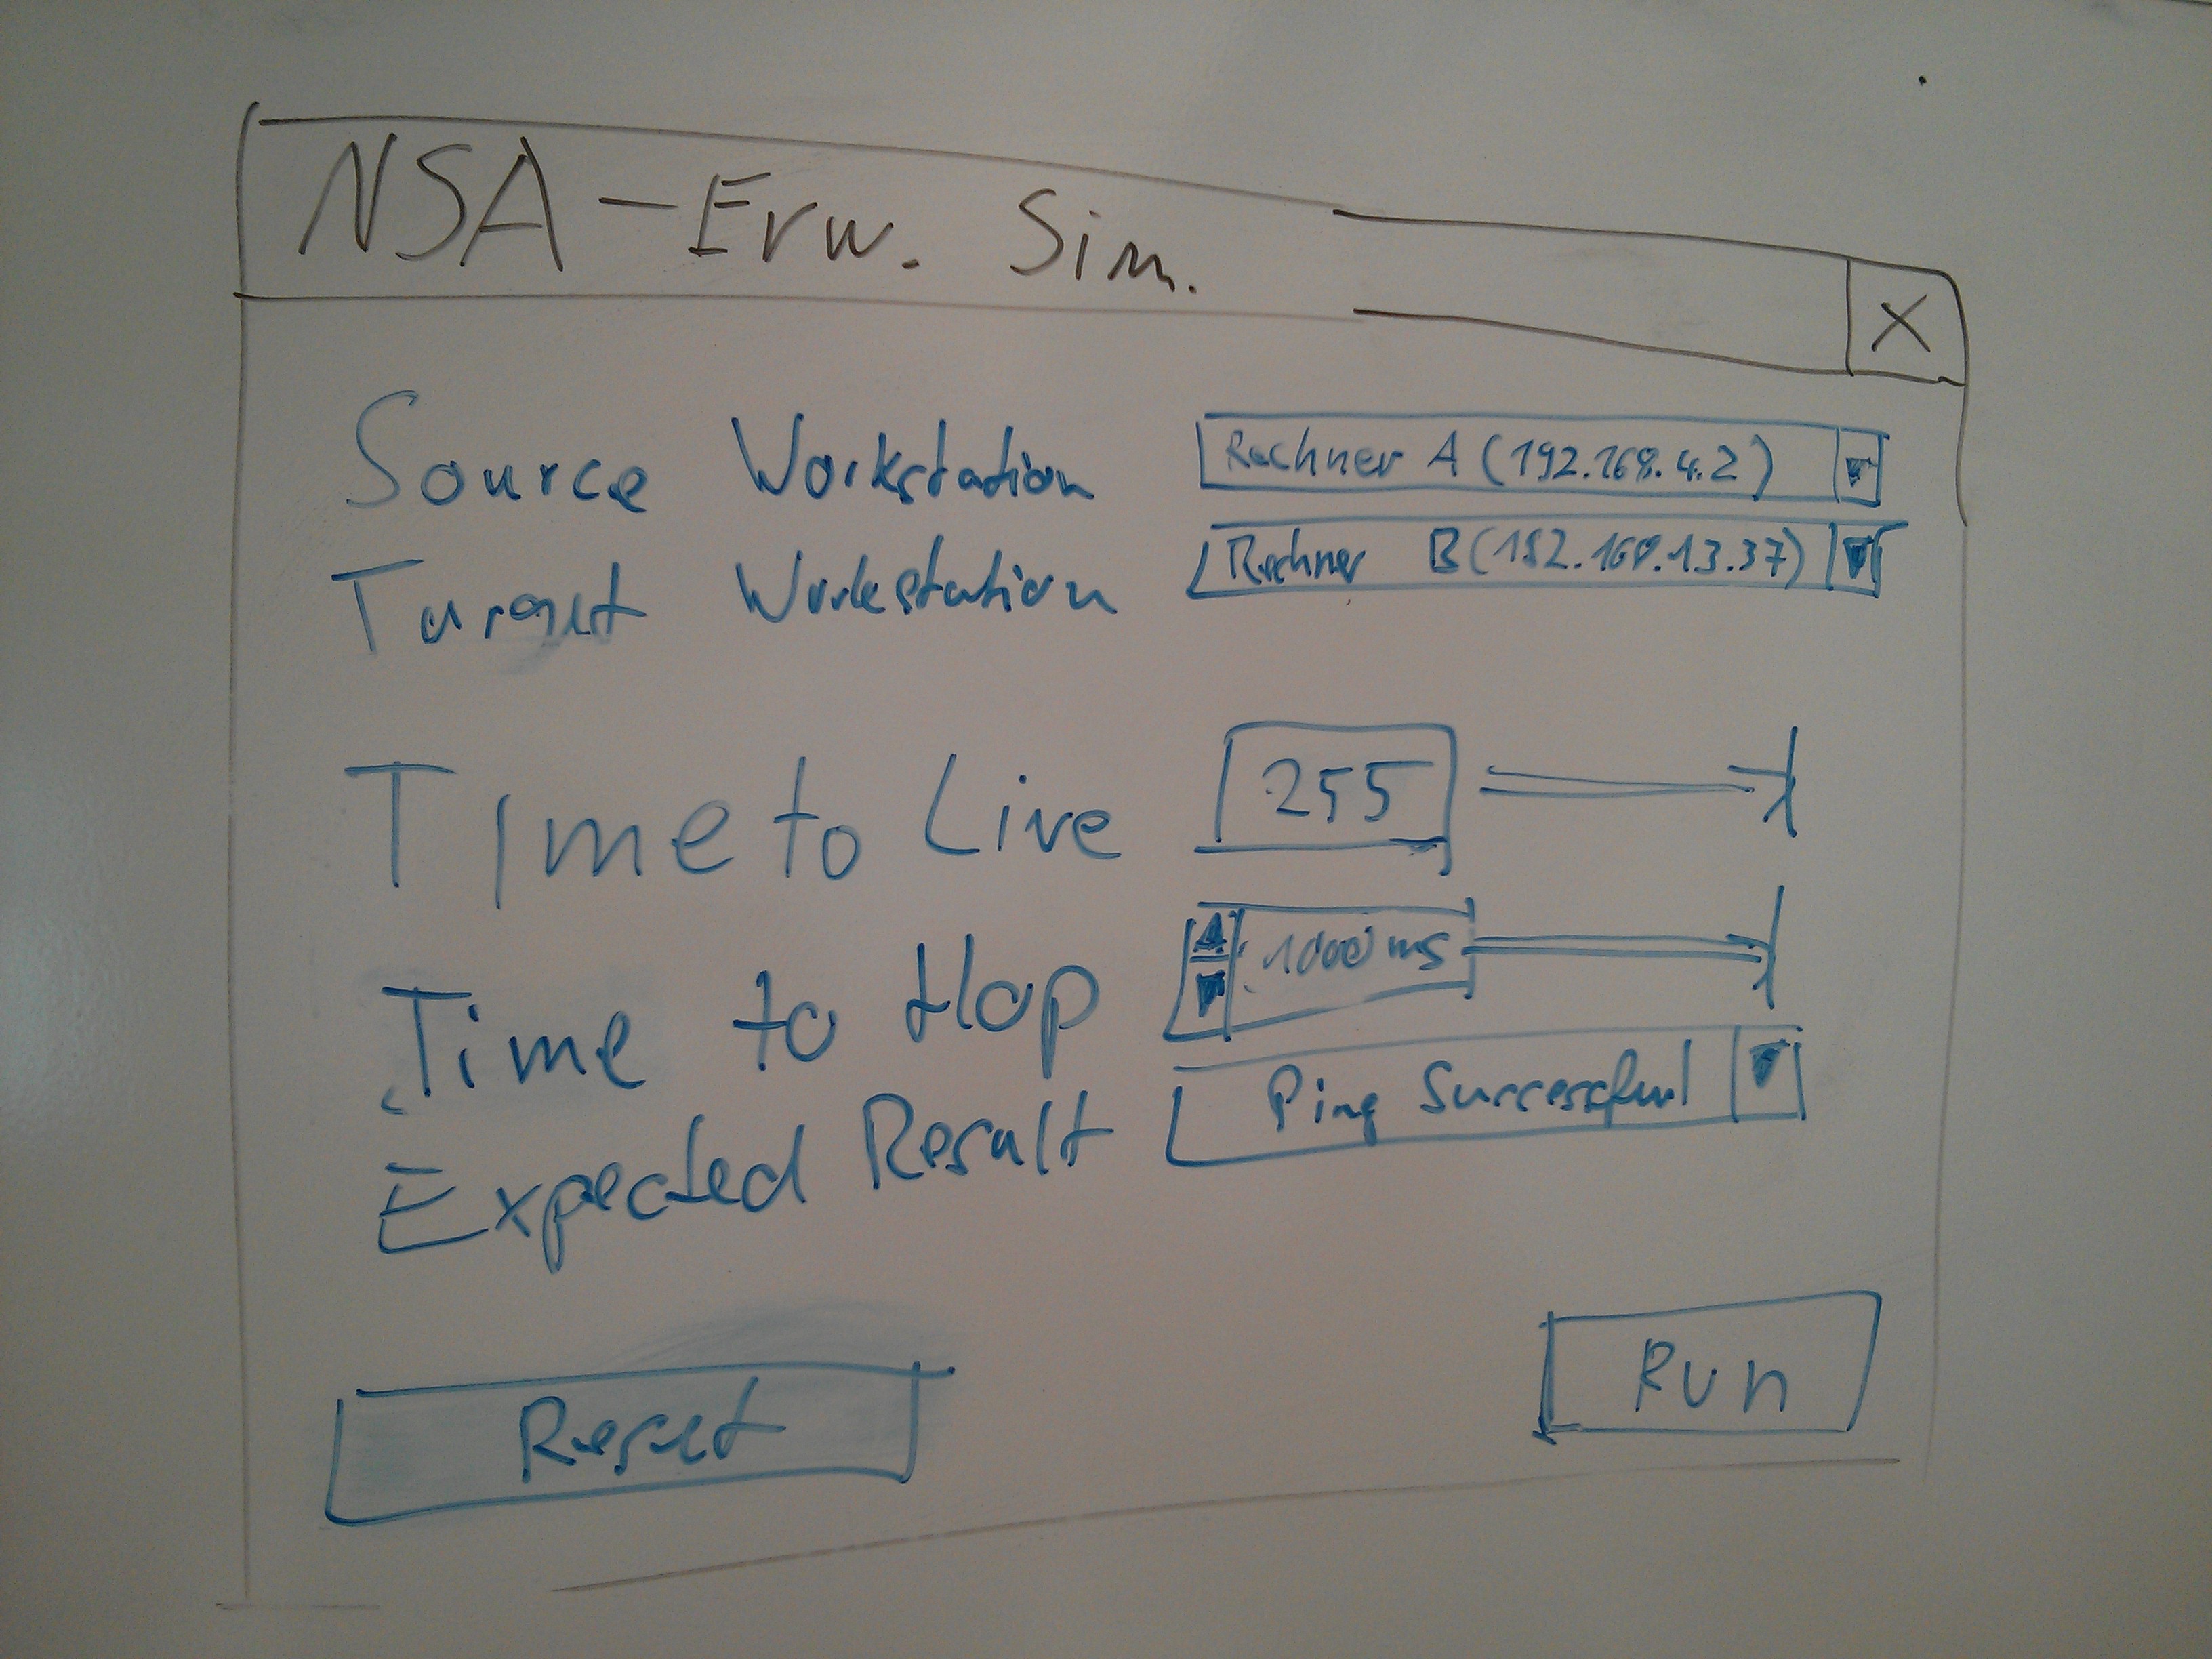 NSA - Erw. Sim. X
Source Workstation Rechner A (192.168.4.2)
Target Workstation Rechner B (192.168.13.37)
Time to Live 255
Time to Hop 1000 ms
Expected Result Ping Successful
Reset Run